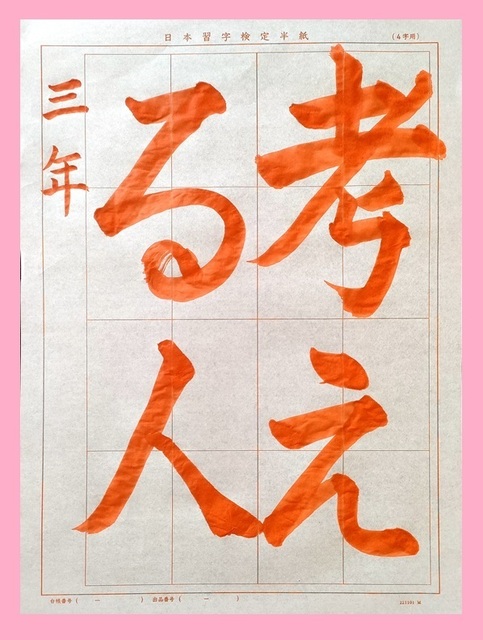 日本習字検定半紙
(4字用)
考え
る人
三年
台帳番号 ( ー )
出品番号 ( ー )